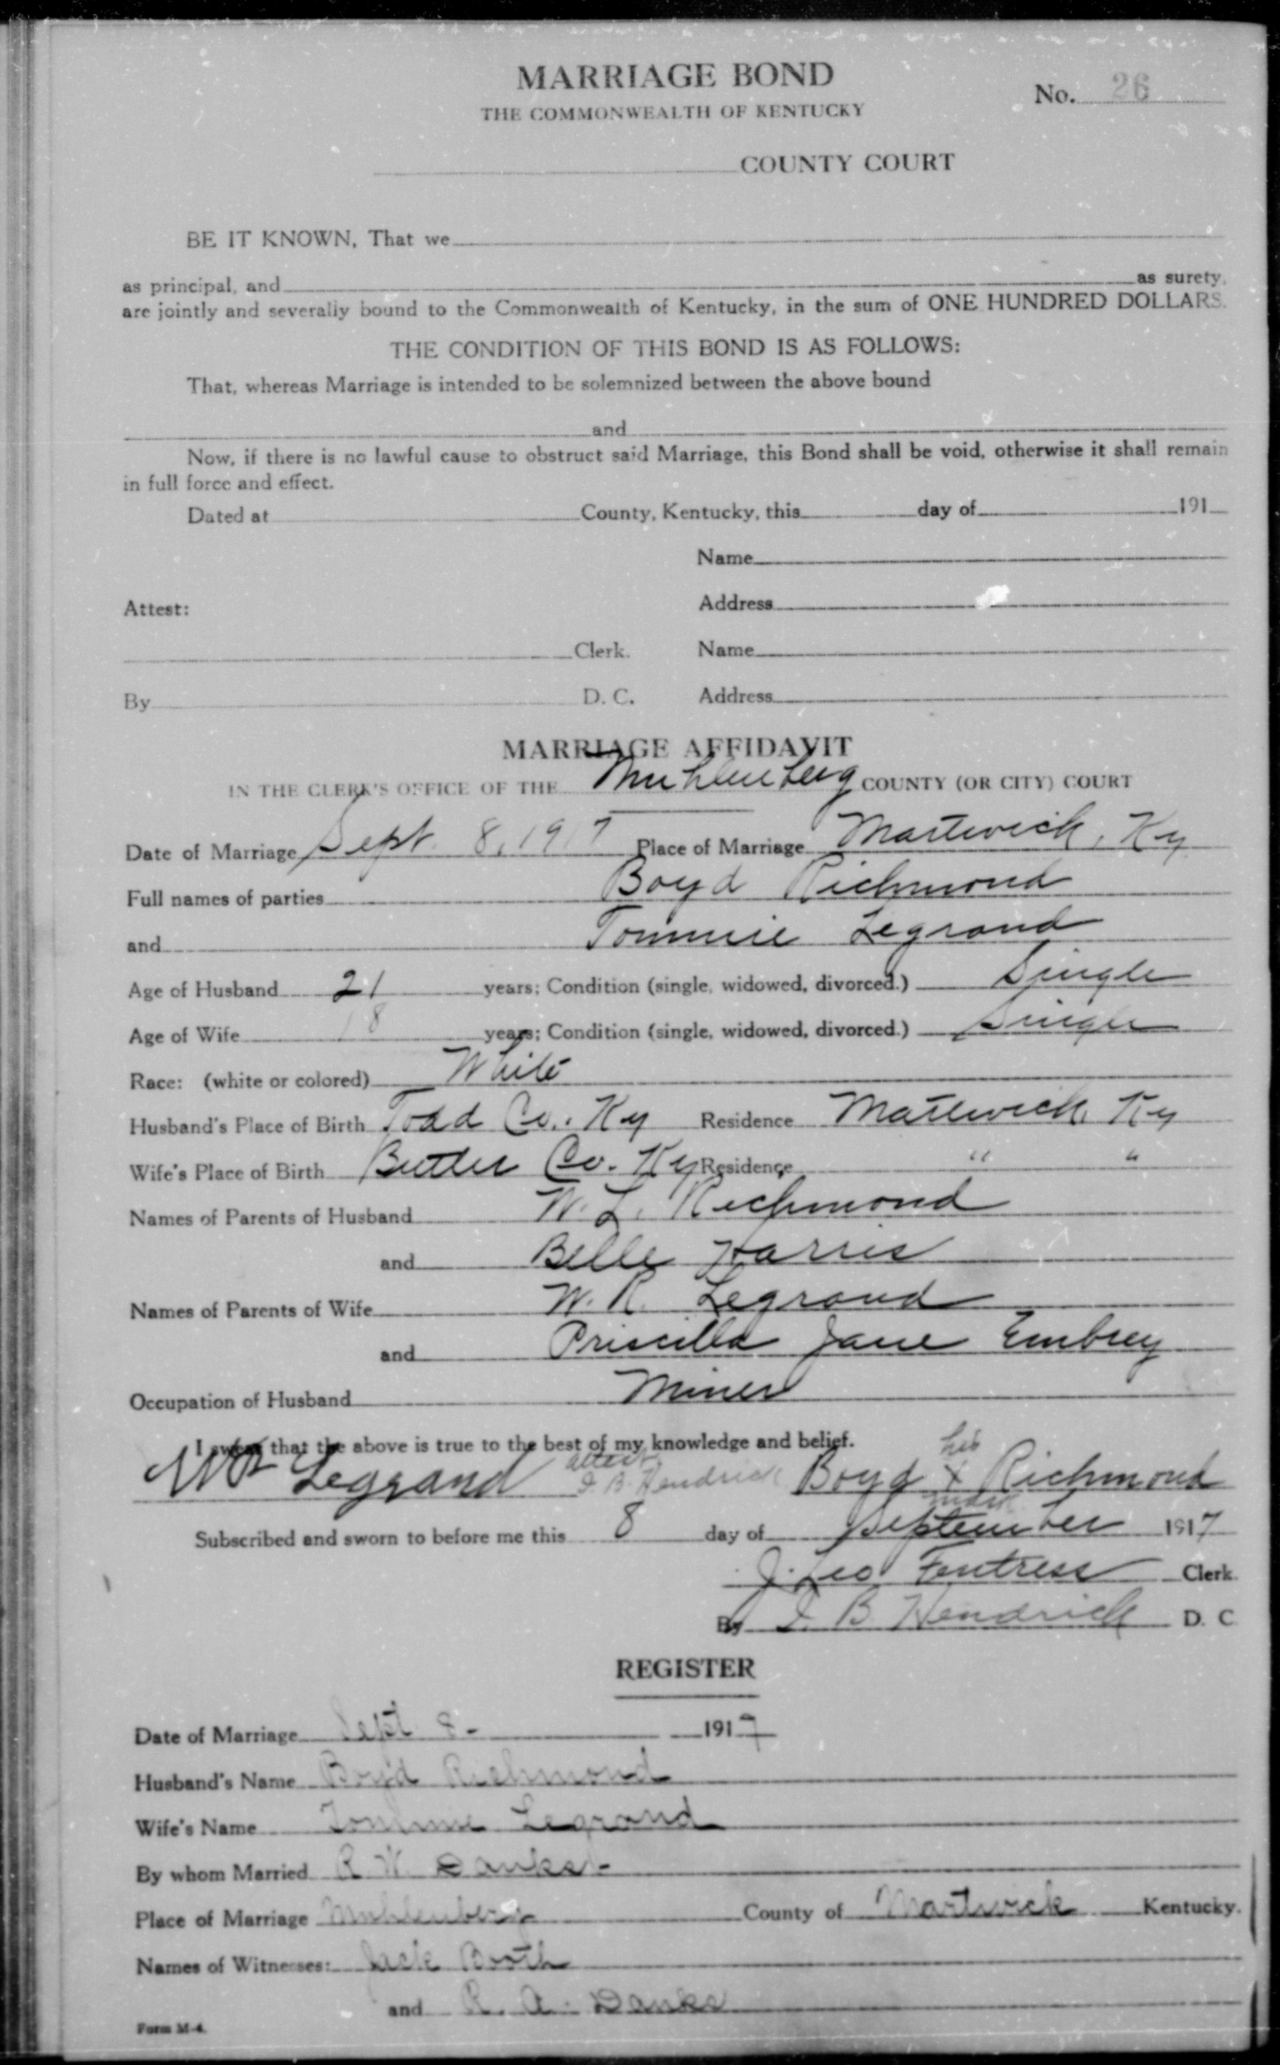 MARRIAGE BOND
No. 26
THE COMMONWEALTH OF KENTUCKY
COUNTY COURT
BE IT KNOWN, That we
as principal, and as surety,
are jointly and severally bound to the Commonwealth of Kentucky, in the sum of ONE HUNDRED DOLLARS.
THE CONDITION OF THIS BOND IS AS FOLLOWS:
That, whereas Marriage is intended to be solemnized between the above bound
and
Now, if there is no lawful cause to obstruct said Marriage, this Bond shall be void, otherwise it shall remain
in full force and effect.
Dated at County, Kentucky, this day of 191
Name
Attest: Address
Clerk. Name
By D. C. Address
MARRIAGE AFFIDAVIT
IN THE CLERK'S OFFICE OF THE Muhlenberg COUNTY (OR CITY) COURT
Date of Marriage Sept. 8, 1917 Place of Marriage Martwick, Ky
Full names of parties Boyd Richmond
and Tommie Legrand
Age of Husband 21 years; Condition (single, widowed, divorced.) Single
Age of Wife 18 years; Condition (single, widowed, divorced.) Single
Race: (white or colored) White
Husband's Place of Birth Todd Co. Ky Residence Martwick, Ky
Wife's Place of Birth Butler Co. Ky Residence " "
Names of Parents of Husband W. L. Richmond
and Belle Harris
Names of Parents of Wife W. R. Legrand
and Priscilla Jane Embrey
Occupation of Husband Miner
I swear that the above is true to the best of my knowledge and belief.
W R Legrand attest I. B. Hendrick Boyd his x mark Richmond
Subscribed and sworn to before me this 8 day of September 1917
J. Leo Fentress Clerk.
By I. B. Hendrick D. C.
REGISTER
Date of Marriage Sept 8- 1917
Husband's Name Boyd Richmond
Wife's Name Tommie Legrand
By whom Married R. W. Danks-
Place of Marriage Muhlenberg County of Martwick Kentucky.
Names of Witnesses: Jack Booth
and R. A. Danks
Form M-4.